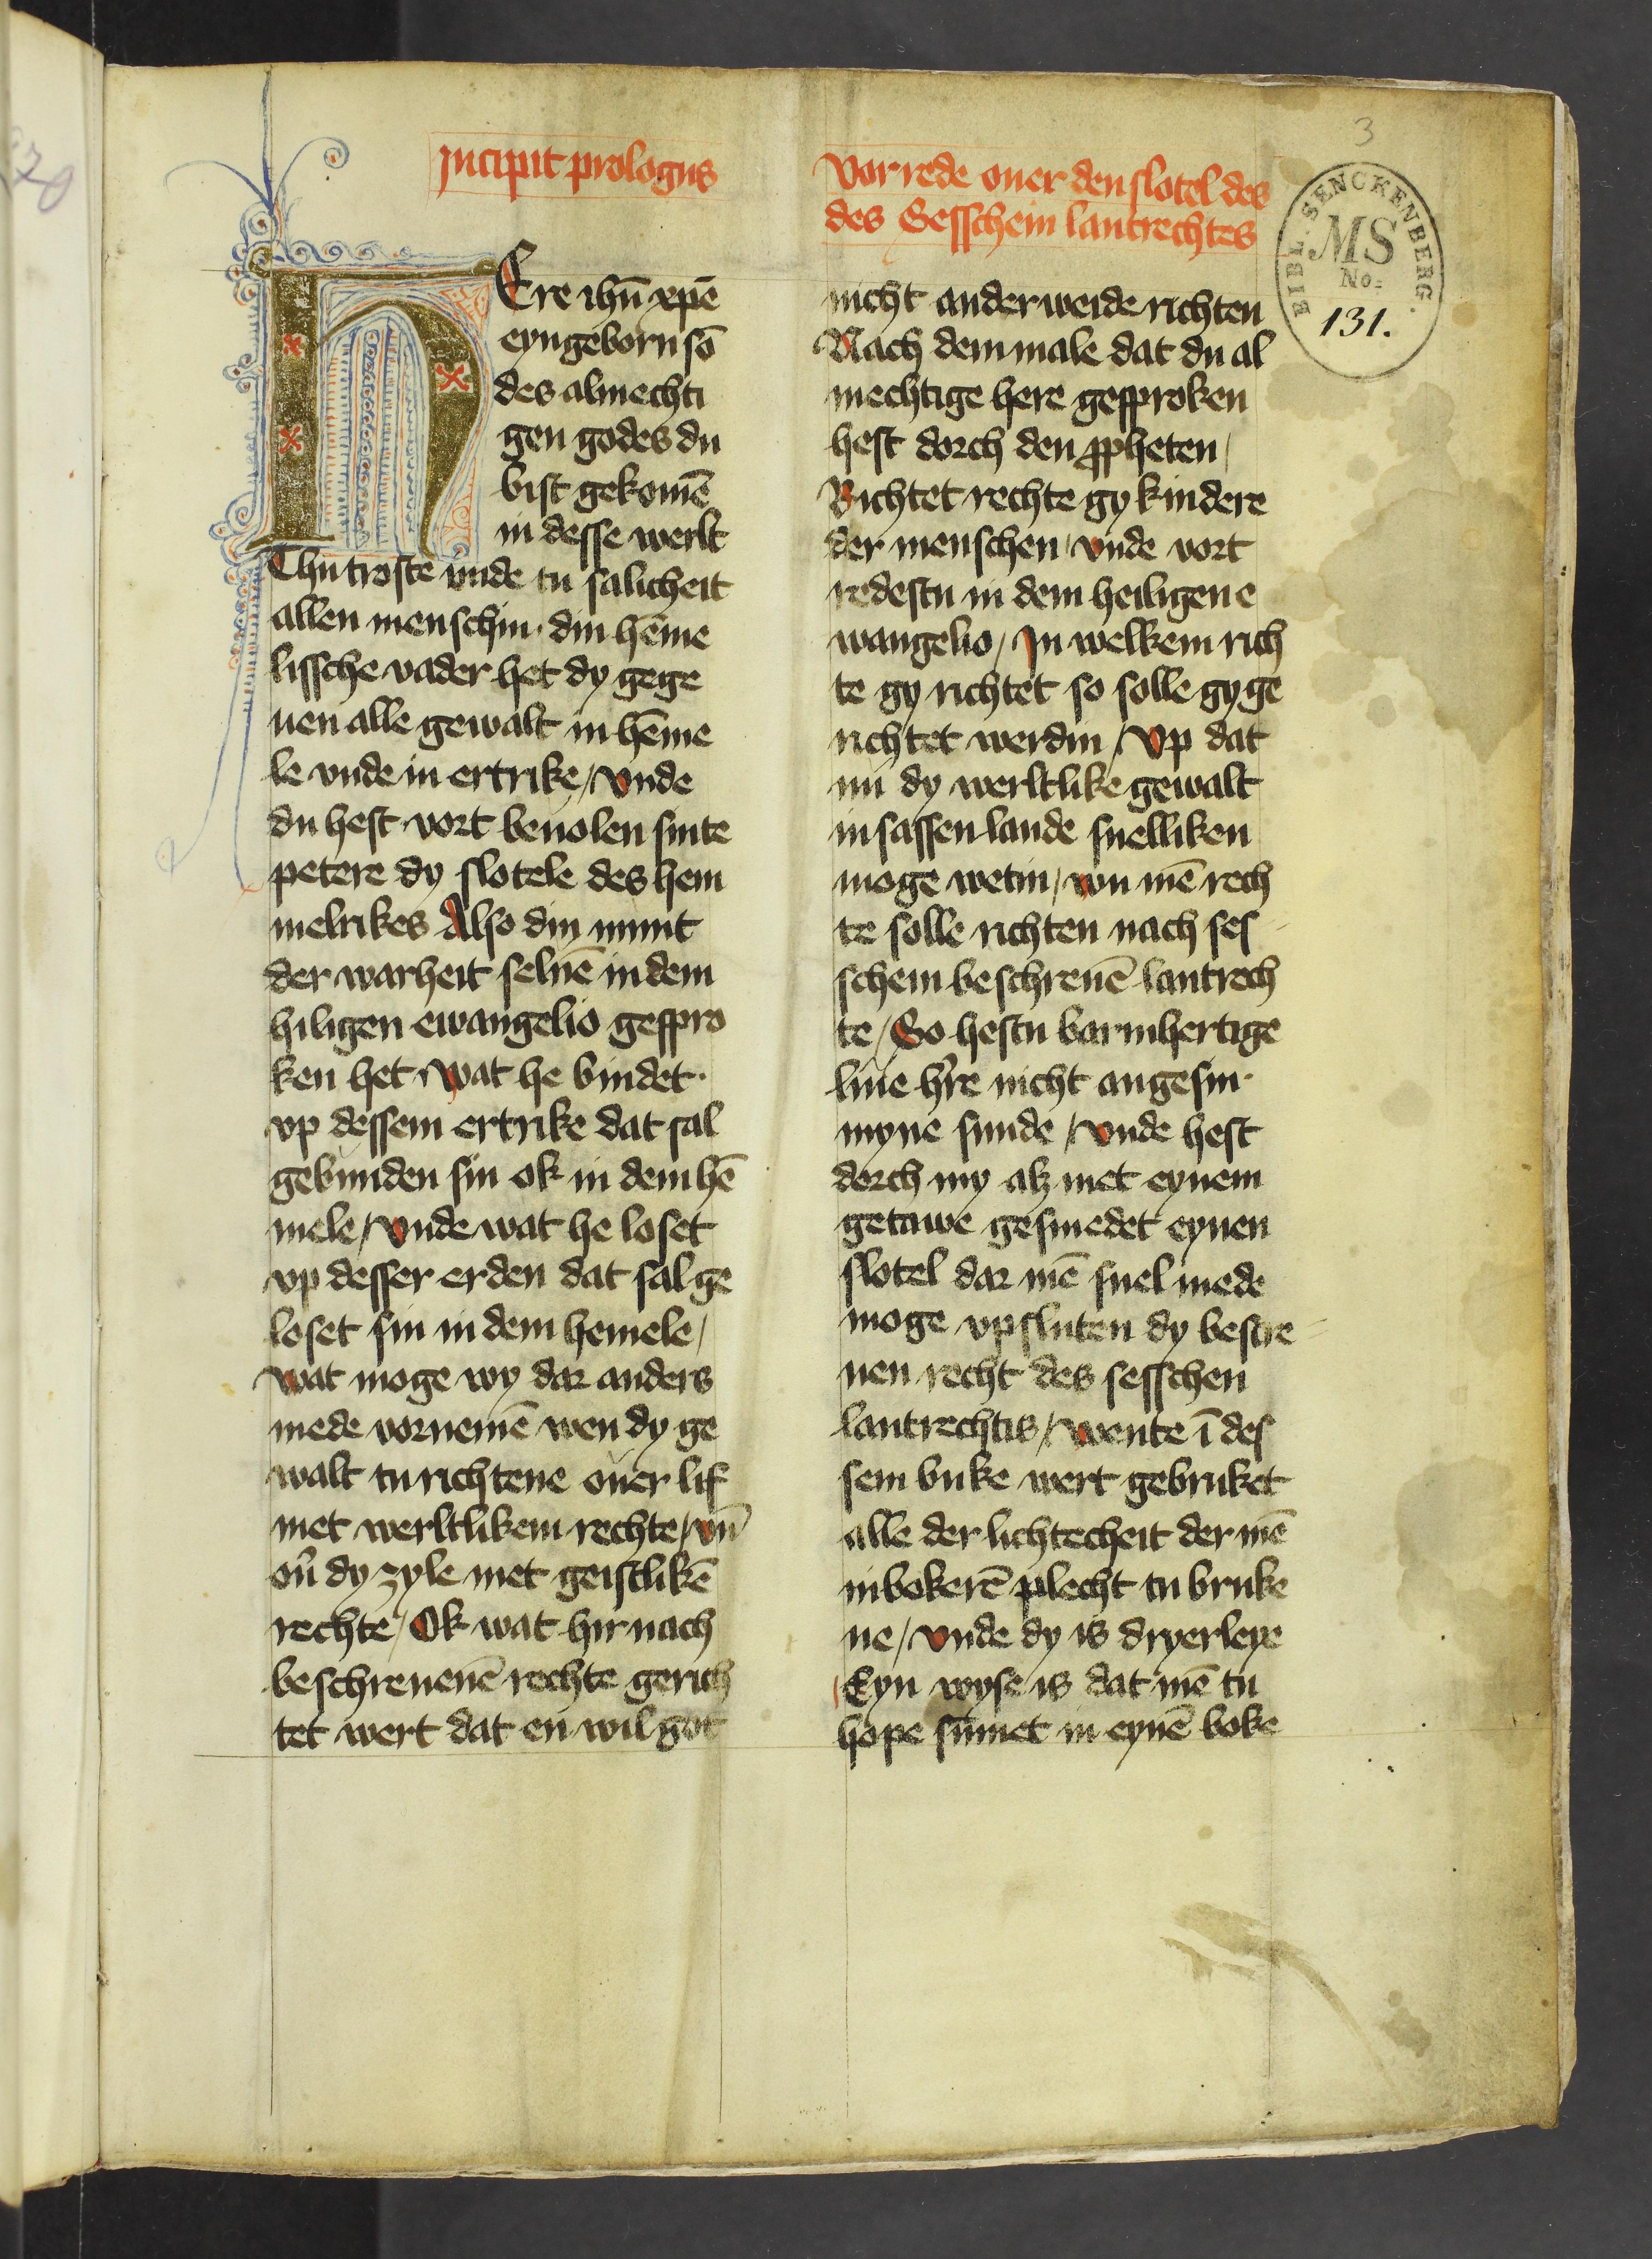 Incipit prologus
HEre ihū xpē
eyngeborn sō
des almechti
gen godes du
bist gekomē
in desse werlt
Thu troste vnde tu salicheit
allen menschin. din hēme
lissche vader het dy gege
uen alle gewalt in hēme
le vnde in ertrike / vnde
du hest vort beuolen sinte
petere dy slotele des hem
melrikes Also din munt
der warheit seluē in dem
hiligen ewangelio gespro
ken het wat he bindet.
vp dessem ertrike dat sal
gebunden sin ok in dem hē
mele / vnde wat he loset
vp desser erden dat sal ge
loset sin in dem hemele /
wat moge wy dar anders
mede vornemē wen dy ge
walt tu richtene ouer lif
met werltlikem rechte / vn̄
ou̓ dy zyle met geistlikē
rechte / Ok wat hir nach
beschreuenē rechte gerich
tet wert dat en wil got
Vorrede ouer den slotel des
des Sesschein lantrechtes
nicht anderweide richten
Nach dem male dat du al
mechtige here gesproken
hest dorch den ꝓpheten /
Richtet rechte gy kindere
der menschen / vnde vort
redestu in dem heiligen e
wangelio / In welkem rich
te gy richtet so solle gy ge
richtet werdin / Vp dat
nu dy werltlike gewalt
in sassen lande snelliken
moge wetin / wu mē rech
te solle richten nach ses
schem beschreuē lantrech
te / So hestu barmhertige
liue hr̄e nicht angesin.
myne sunde / vnde hest
dorch my alz met eynem
getuwe gesmedet eynen
slotel dar mē snel mede
moge vpsluten dy bescre
uen recht des sesschen
lantrechtis / wente ī des
sem buke wert gebruket
alle der lichtecheit der mē
in bokerē plecht tu bruke
ne / vnde dy is dryerleye
Eyn wyse is dat mē tu
hope sūmet in eynē boke
3
BIBL. SENCKENBERG.
MS
No.
131.